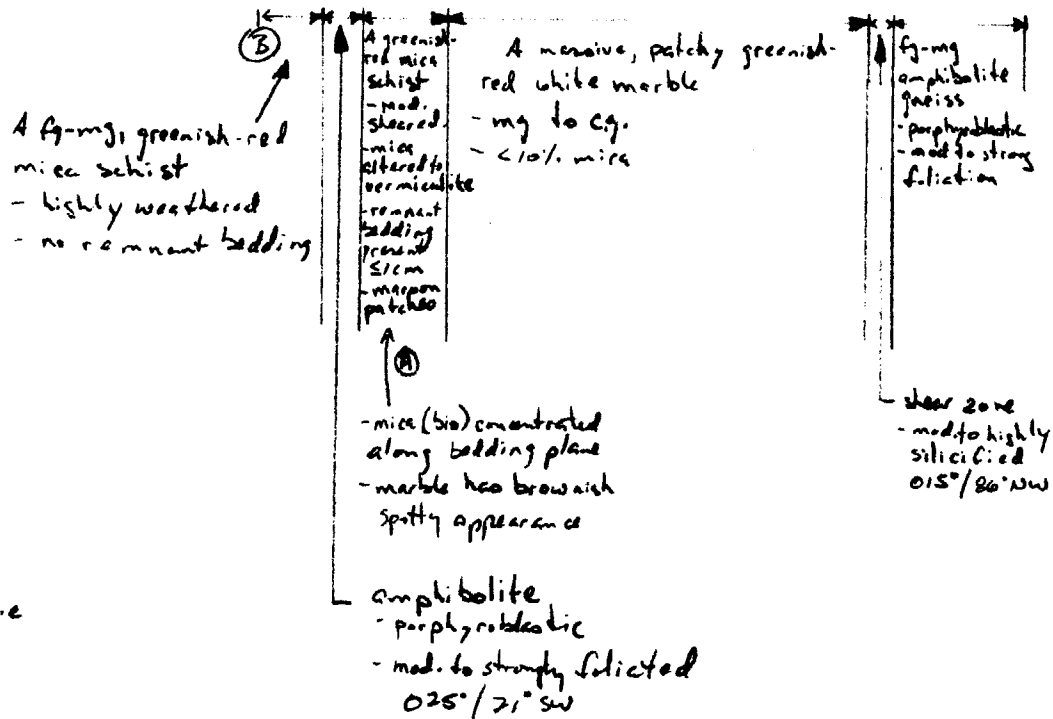 B
A fg-mg, greenish-red
mica schist
- highly weathered
- no remnant bedding
A greenish-
red mica
schist
- mod.
sheared
- mica
altered to
vermiculite
- remnant
bedding
present
≤1cm
- maroon
patches
A massive, patchy greenish-
red white marble
- mg to cg.
- <10% mica
fg-mg
amphibolite
gneiss
- porphyroblastic
- mod to strong
foliation
A
- mica (bio) concentrated
along bedding plane
- marble has brownish
spotty appearance
shear zone
- mod. to highly
silicified
015°/86°NW
amphibolite
- porphyroblastic
- mod. to strongly foliated
025°/71° SW